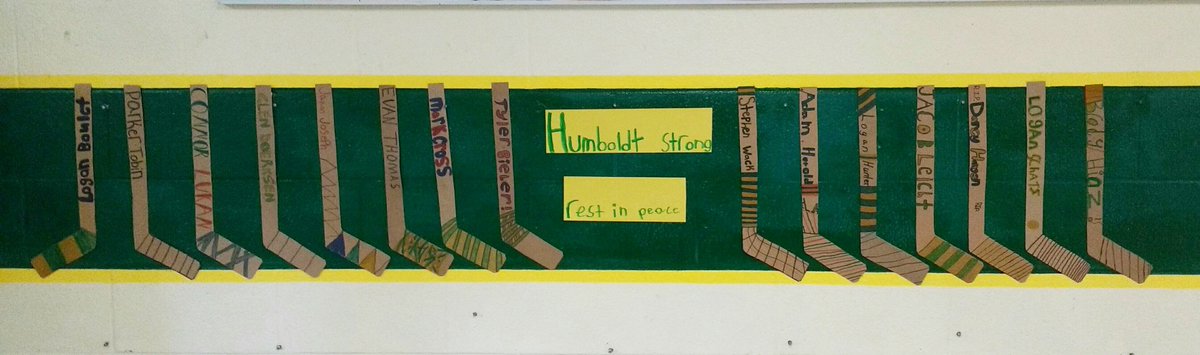 Logan Boulet
Parker Tobin
CONNOR LUKAN
GLEN DOERKSEN
Joseph
EVAN THOMAS
Mark CROSS
Tyler BIEBER
Humboldt Strong
rest in peace
Stephen Wack
Adam Herold
Logan Hunter
JACOB LEICHT
Darcy Haugan
LOGAN SCHATZ
Brody Hinz!